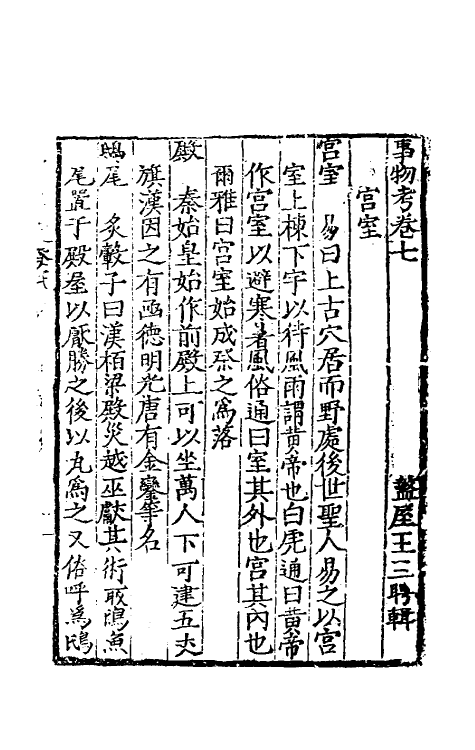 事物考卷七
盩厔王三聘輯
宮室
宮室　易曰上古穴居而野處後世聖人易之以宮
室上棟下宇以待風雨謂黄帝也白虎通曰黄帝
作宮室以避寒暑風俗通曰室其外也宮其內也
爾雅曰宮室始成祭之爲落
殿　秦始皇始作前殿上可以坐萬人下可建五丈
旗漢因之有函德明光唐有金鑾等名
鴟尾　炙轂子曰漢栢梁殿災越巫獻其術取鴟魚
尾置于殿屋以厭勝之後以瓦爲之又俗呼爲鴟